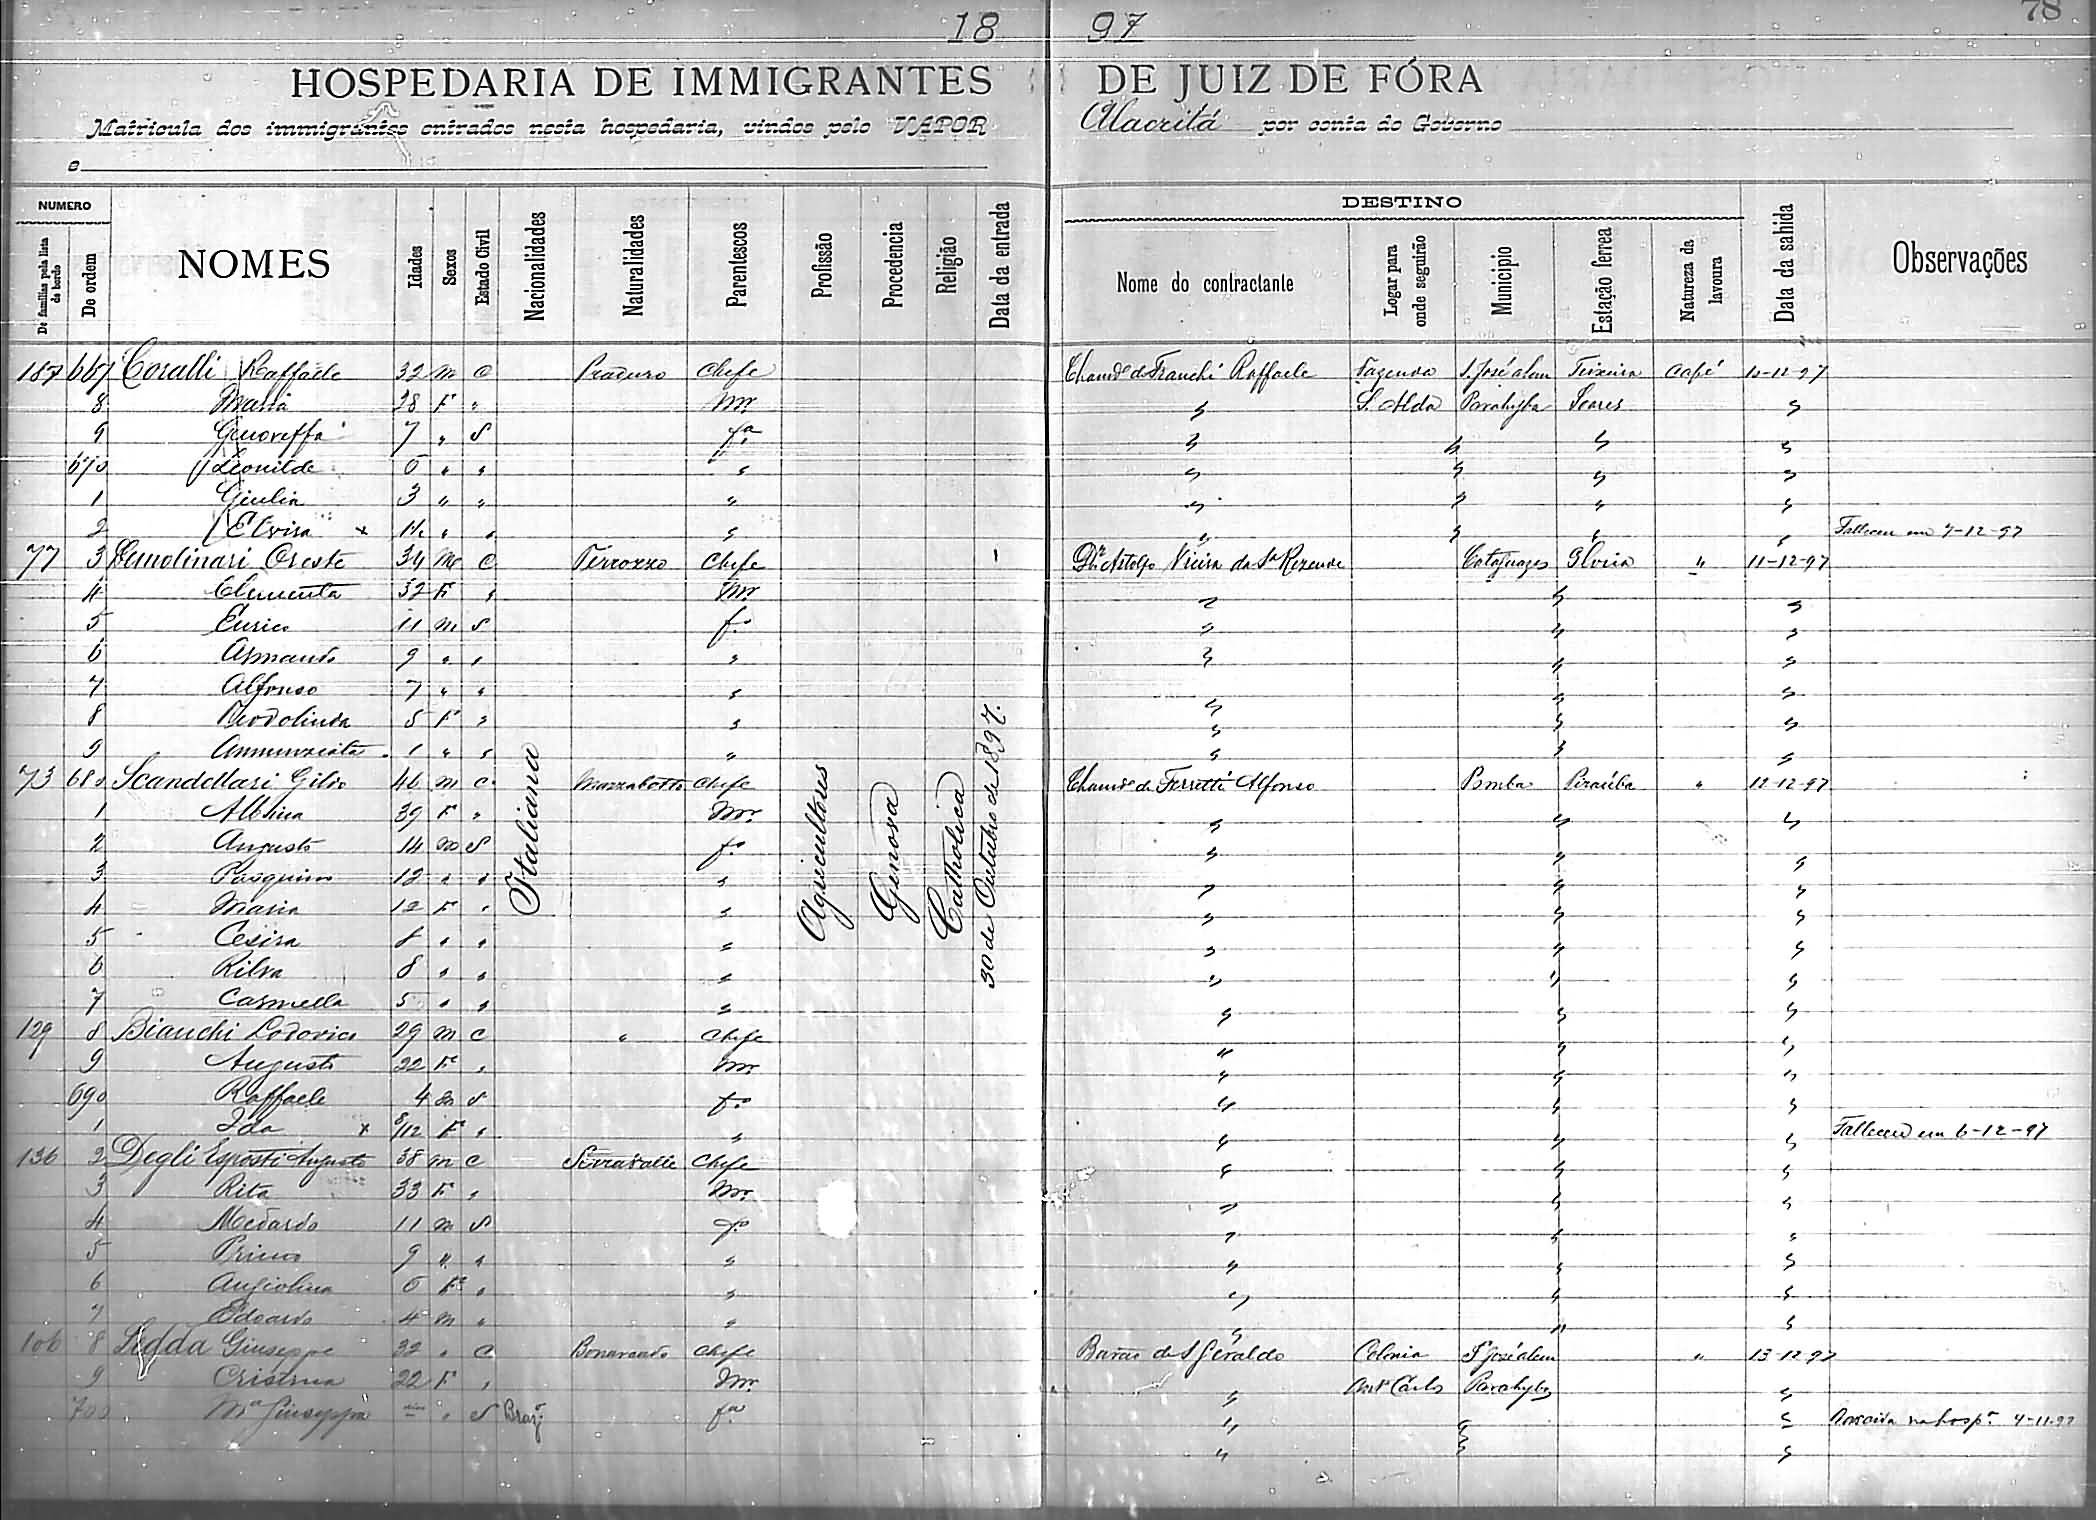 1897
78
HOSPEDARIA DE IMMIGRANTES DE JUIZ DE FÓRA
Matricula dos immigrantes entrados nesta hospedaria, vindos pelo VAPOR Alacritá por conta do Governo
e
NUMERO
De familias pela lista de bordo
De ordem
NOMES
Idades
Sexos
Estado Civil
Nacionalidades
Naturalidades
Parentescos
Profissão
Procedencia
Religião
Data da entrada
DESTINO
Nome do contractante
Logar para onde seguirão
Municipio
Estação ferrea
Natureza da lavoura
Data da sahida
Observações
Italiana
Agricultores
Genova
Catholica
30 de Outubro de 1897.
187 667 Coralli Raffaele 32 m C Chefe Cham° de Franchi Raffaele Fazenda S. José alem Teixeira Café 12-97
8 Maria 28 F " Mr. " S. Alda Parahyba Soares "
9 Genoveffa 7 " S fa " " " "
670 Leonilde " " " " " " "
1 Giulia 3 " " " " " " "
2 Elvira x " " " " " " " Falleceu em 7-12-97
77 3 Oreste 34 m C Chefe Dr. Astolfo Vieira da Sa Rezende Cataguazes Gloria " 11-12-97
4 Clementa 32 F " Mr. " " "
5 Enrico 11 m S fo " " "
6 Armando 9 " " " " " "
7 Alfonso 7 " " " " " "
8 Teodolinda 5 F " " " " "
9 Annunziata 1 " " " " " "
73 680 Scandellari Gildo 46 m C Marzabotto Chefe Cham° de Ferretti Alfonso Pomba Piraúba " 12-12-97
1 Albina 39 F " Mr. " " "
2 Augusto 14 m S fo " " "
3 Pasquino 12 " " " " " "
4 Maria 12 F " " " " "
5 Cesira 8 " " " " " "
6 8 " " " " " "
7 Carmella 5 " " " " " "
129 8 Bianchi Lodovico 29 m C " Chefe " " "
9 Augusta 22 F " Mr. " " "
690 Raffaele 4 m S fo " " "
1 Ida x 8/12 F " " " " " Falleceu em 6-12-97
136 2 Degli Esposti Augusto 38 m C Serravalle Chefe " " "
3 Rita 33 F " Mr. " " "
4 Medardo 11 m S fo " " "
5 Primo 9 " " " " " "
6 Angiolina F " " " " "
7 Edoardo 4 m " " " " "
106 8 Ledda Giuseppe 32 " C Bonarcado Chefe Barão de S Geraldo Colonia S José alem " 13-12-97
9 Cristina 22 F " Mr. " Ant° Carlos Parahyba "
700 Ma Giuseppa " S Braz. fa " " " Nascida na hosp. 7-11-97
" " "